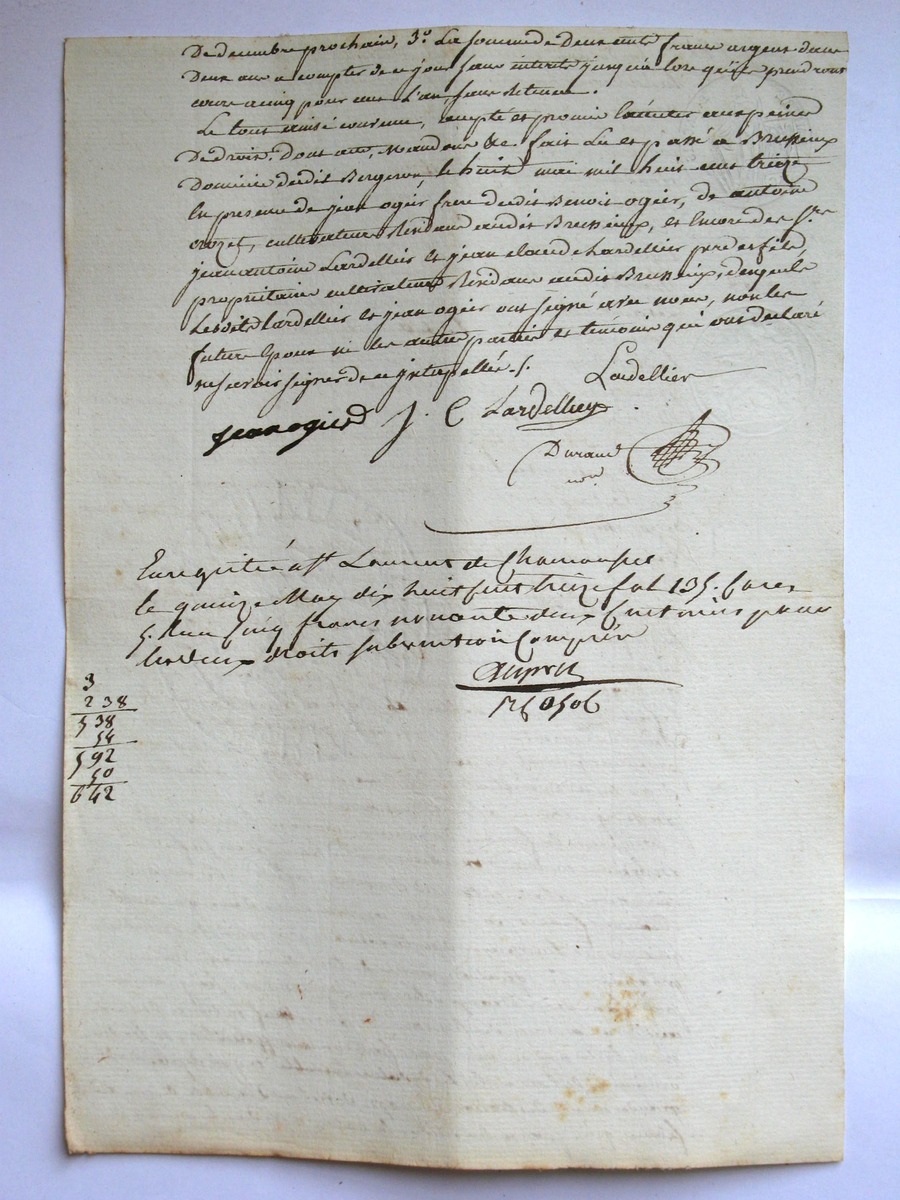 De decembre prochain, 3.° La somme de Deux cents francs argent dans
Deux ans a compter de ce jour sans interets jusqu'a lors qu'ils prendront
cours a cinq pour cent L'an, sans Retenue.
Le tout ainsi convenu, accepté et promis l'executer aux peines
De droit. Dont acte, Mandons &a. fait Lu et passé a Brussieux
Domicile dudit Bergeron, le huit mai mil huit cent treize
En presence de jean ogier frere dudit Benoit ogier, de antoine
crozet, cultivateurs Residans audit Brussieux, et Encore des S.rs
jean antoine Lardellier et jean claude Lardellier pere et fils,
proprietaires cultivateurs Residans audit Brussieux, desquels
Lesdits Lardellier et jean ogier ont signé avec nous, non les
futurs Epoux ni les autres parties et temoins qui ont declaré
ne savoir signer de ce interpellés ./.
Lardellier
jean ogier J. C Lardellier
Durand
no.re
Enregistré a St Laurent de Chamousset
le quinze May dix huit cent treize fol 135.
5. Reçu Cinq francs nonante deux Centimes pour
les deux droits subvention Comprise
3
2 38
5 38
54
5 92
50
6 42